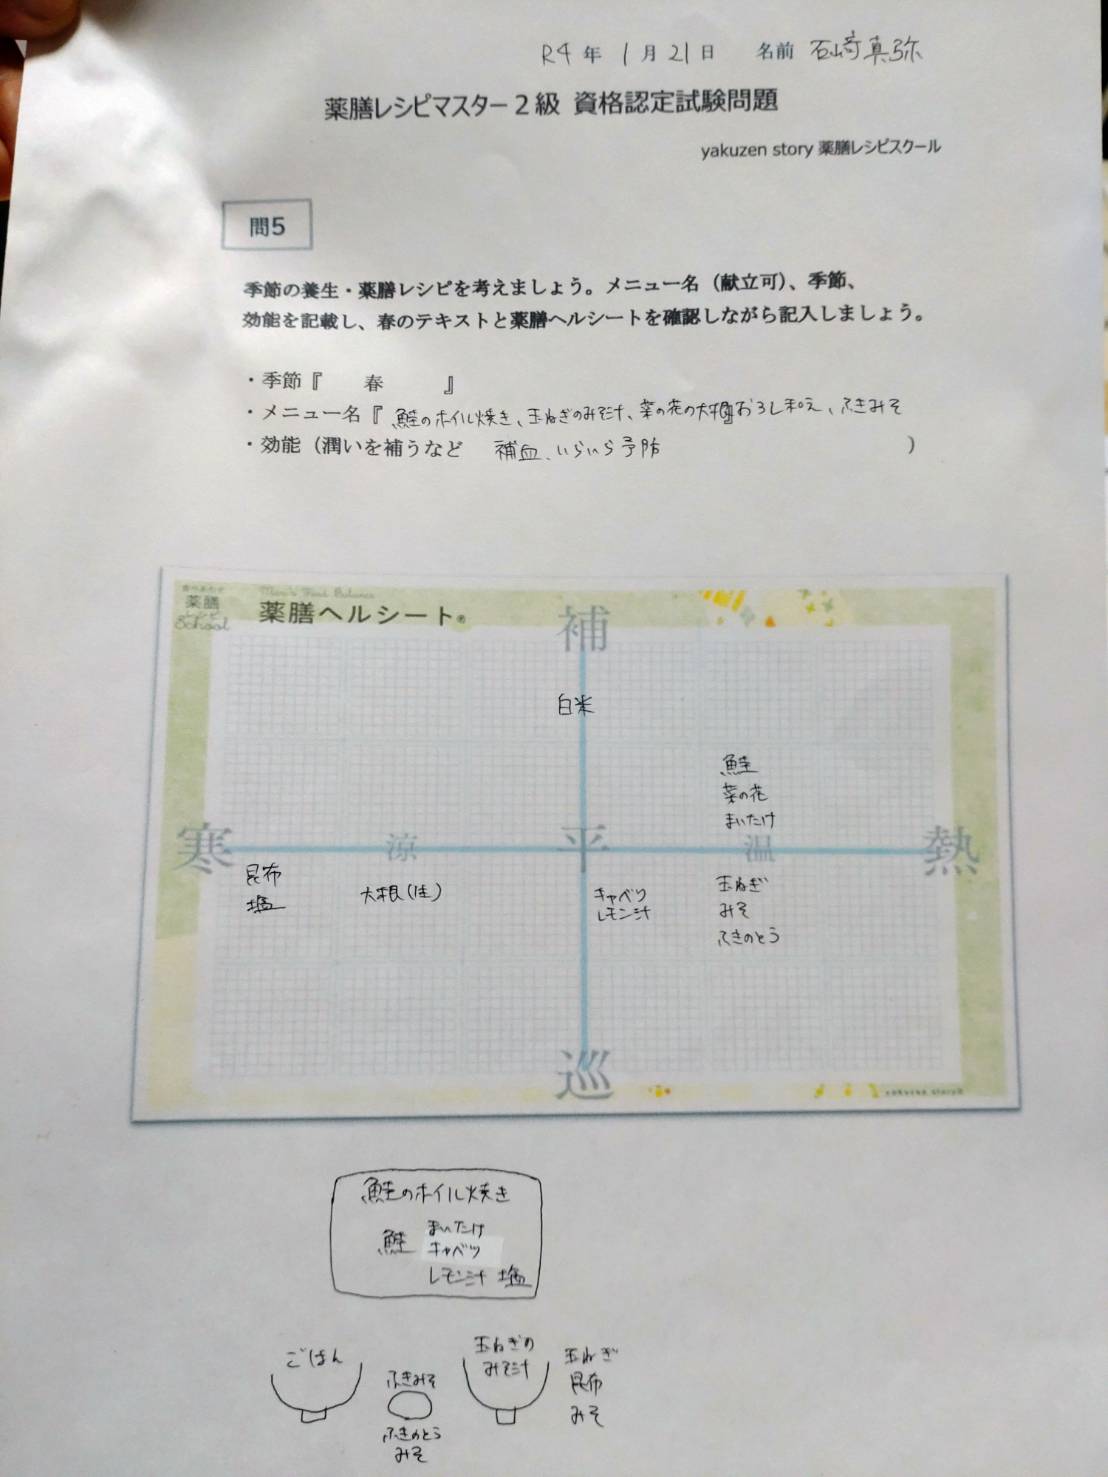 R4年 1月21日 名前 石崎真弥
薬膳レシピマスター２級 資格認定試験問題
yakuzen story 薬膳レシピスクール
問5
季節の養生・薬膳レシピを考えましょう。メニュー名（献立可）、季節、
効能を記載し、春のテキストと薬膳ヘルシートを確認しながら記入しましょう。
・季節『 春 』
・メニュー名『 鮭のホイル焼き、玉ねぎのみそ汁、菜の花の大根おろし和え、ふきみそ
・効能（潤いを補うなど 補血、いらいら予防 ）
薬膳
School
薬膳ヘルシート®
補
白米
鮭
菜の花
まいたけ
寒 涼 平 温 熱
昆布
塩
大根(生)
キャベツ
レモン汁
玉ねぎ
みそ
ふきのとう
巡
yakuzen story®
鮭のホイル焼き
鮭 まいたけ
キャベツ
レモン汁 塩
ごはん
ふきみそ
ふきのとう
みそ
玉ねぎの
みそ汁
玉ねぎ
昆布
みそ